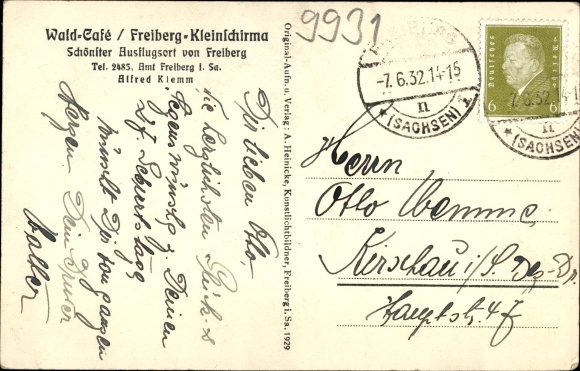 Wald-Café / Freiberg-Kleinschirma
Schönster Ausflugsort von Freiberg
Tel. 2485. Amt Freiberg i. Sa.
Alfred Klemm
Dir lieben Otto
die herzlichsten Glück- &
Segenswünsche z. Deinem
Geburtstag
wünscht Dir von ganzem
Herzen Dein
Walter
Original-Aufn. u. Verlag: A. Heinicke, Kunstlichtbildner, Freiberg i. Sa. 1929
9931
-7.6.32.14-15
n
* (SACHSEN)
Deutsches Reich
6 6
7.6.32.14-15
n
* (SACHSEN)
Herrn
Otto
i/S. Bez.
Hauptstr. 47